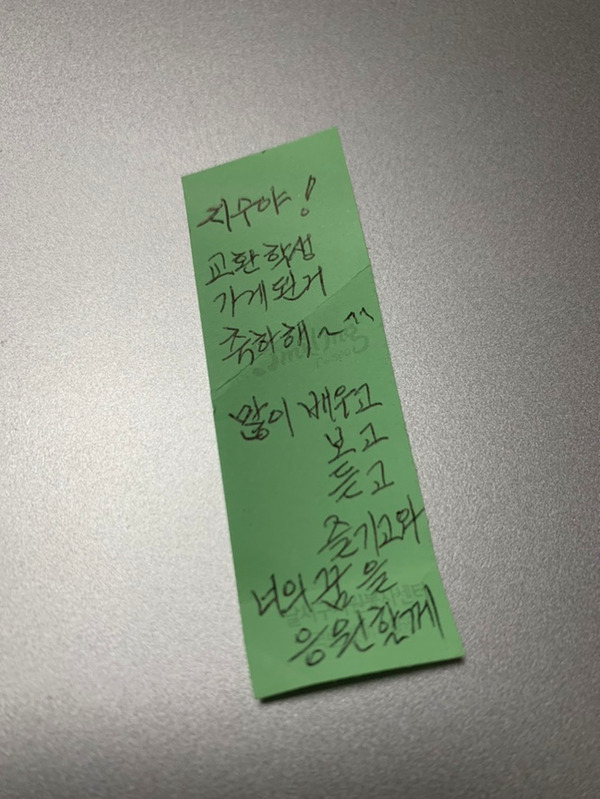 지수야!
교환학생
가게된거
축하해~^^
많이 배우고
보고
듣고
즐기고와
너의 꿈을
응원할게